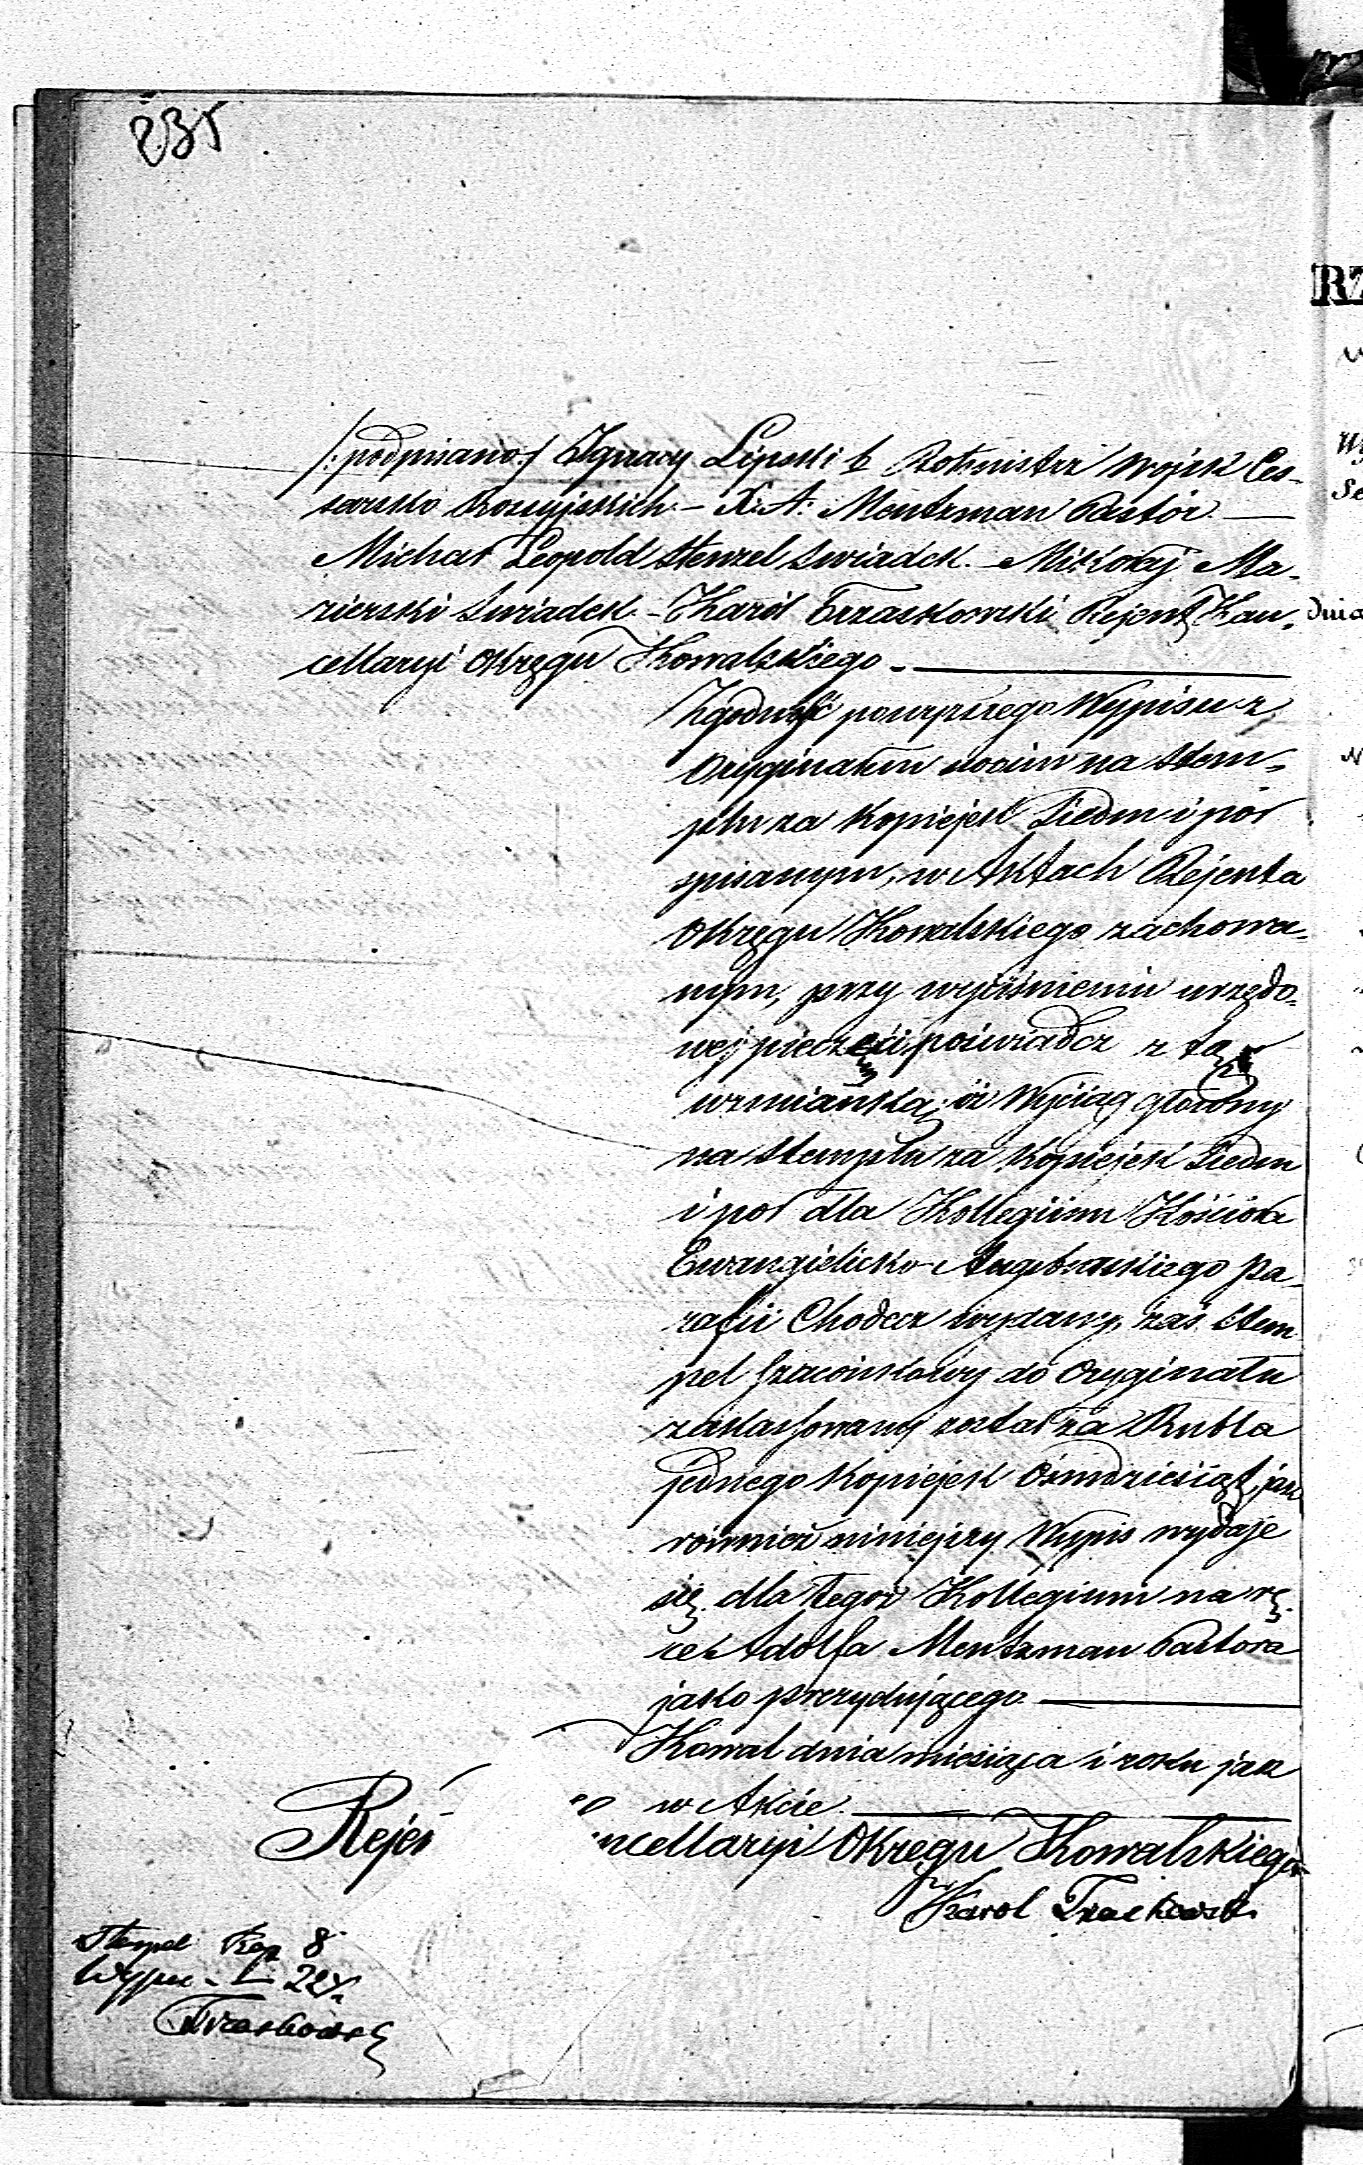 235
/:podpisano:/ Ignacy Lipski b Rotmistrz Wojsk Ces-
sarsko Rossyjskich. - X. A: Mentzman Pastór. —
Michał Leopold Stenzel świadek. - Mikołaj Ma-
zierski świadek. - Karól Trzaskowski Rejent Kan-
cellaryi Okręgu Kowalskiego. —
Zgodność powyższego Wypisu z
Oryginałem swoim na stem-
plu za kopiejek Siedm i pół
spisanym, w Aktach Rejenta
Okręgu Kowalskiego zachowa-
nym, przy wyciśnieniu urzędo-
wej pieczęci poświadcz z tą
wzmianką, iż Wyciąg główny
na stemplu za kopiejek Siedm
i pół dla Kollegium Kościoła
Ewangielicko-Augsburskiego Pa-
rafii Chodecz wydany, zaś stem
pel szacunkowy do Oryginału
zakassowany został za Rubla
jednego kopiejek Ośmdziesiąt, jak
również niniejszy Wypis wydaje
się dla tegoż Kollegium na rę-
ce Adolfa Mentzman Pastora
jako prezydującego. —
Kowal dnia miesiąca i roku jak
w Akcie. —
Rejen ncellaryi Okręgu Kowalskiego
Karol Trzaskowski
Stempel Kop 8
Wypis - L 22½
Trzaskowski
RZ
dnia